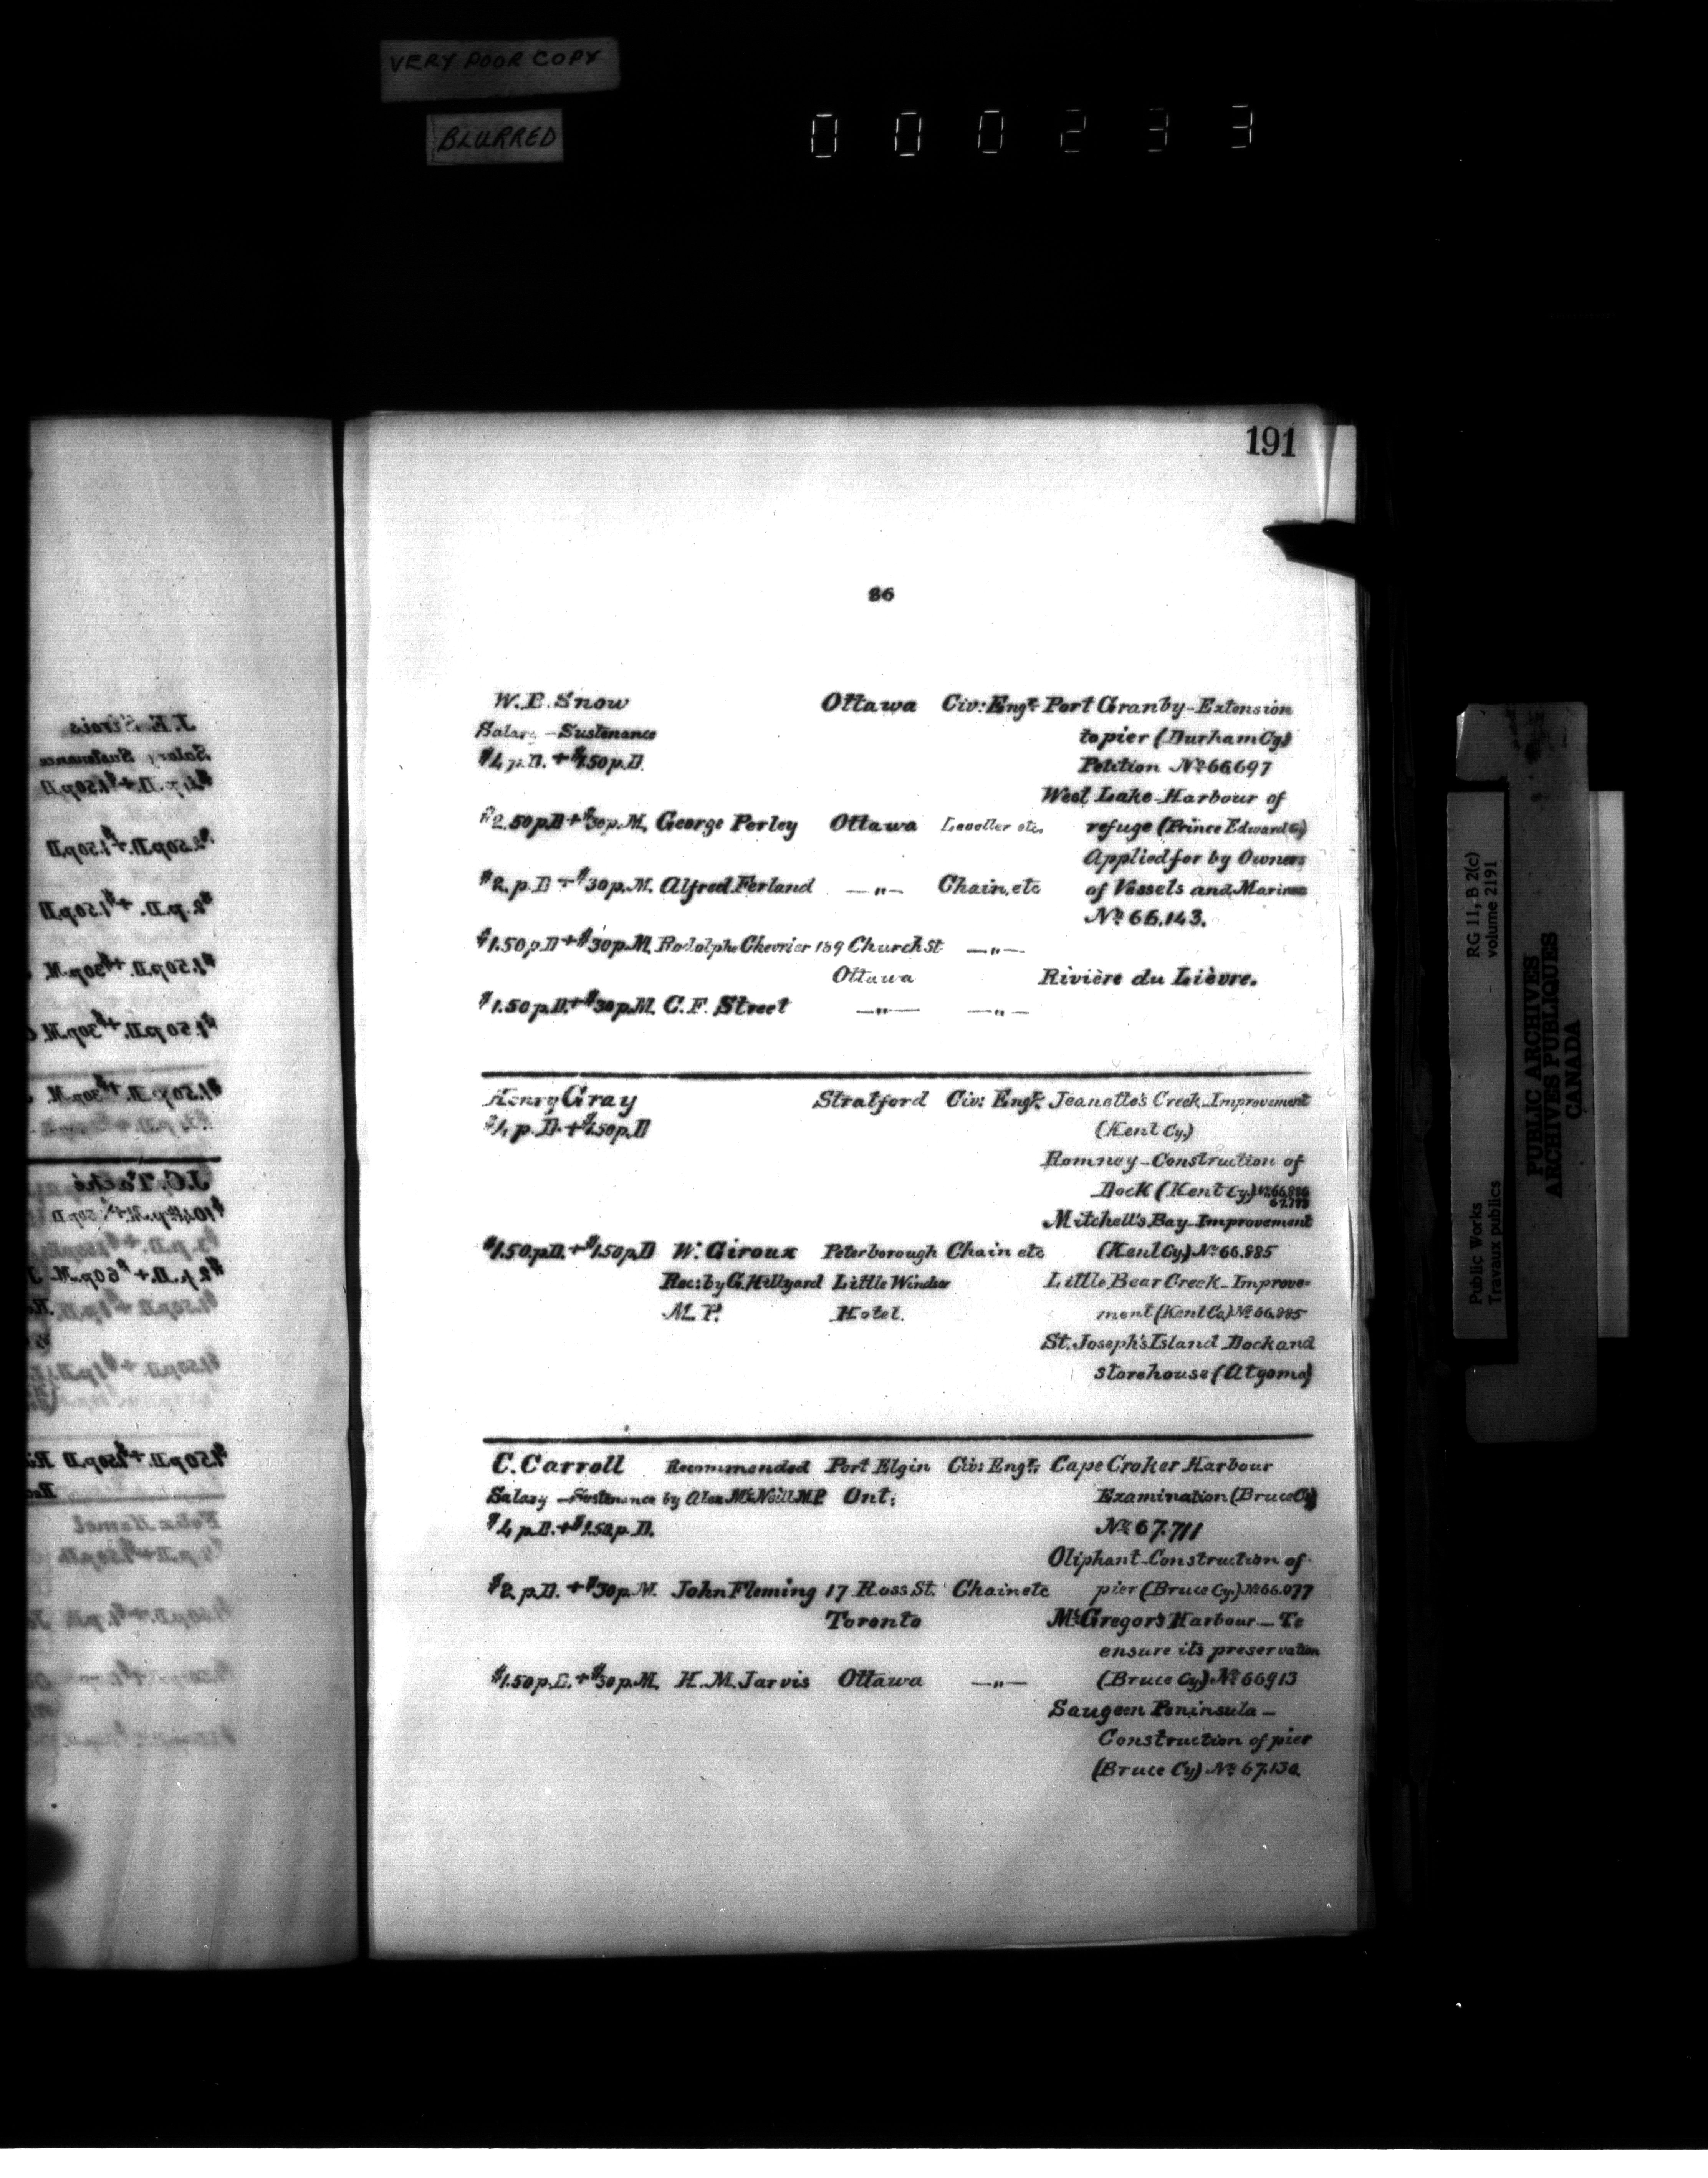 VERY POOR COPY
BLURRED
000233
191
86
W. B. Snow Ottawa Civ: Engr. Port Granby - Extension
Salary - Sustenance to pier (Durham Cy)
$4 p. D. + $1.50 p. D. Petition No 66697
West Lake - Harbour of
$2.50 p. D + $30 p. M. George Perley Ottawa Leveller etc. refuge (Prince Edward Cy)
Applied for by Owners
$2. p. D + $30 p. M. Alfred Ferland — " — Chain. etc of Vessels and Mariners
No 66.143.
$1.50 p. D + $30 p. M. Rodolphe Chevrier 189 Church St — " —
Ottawa Rivière du Lièvre.
$1.50 p. D. + $30 p. M. C. F. Street — " — — " —
Henry Gray Stratford Civ: Engr. Jeanette's Creek - Improvement
$4 p. D. + $1.50 p. D (Kent Cy.)
Romney - Construction of
Dock (Kent Cy.)
Mitchell's Bay - Improvement
$1.50 p. D. + $1.50 p. D W. Giroux Peterborough Chain etc (Kent Cy) No 66.885
Rec: by G. Hillyard Little Windsor Little Bear Creek - Improve-
M. P. Hotel. ment (Kent Co.) No 66.885
St. Joseph's Island Dock and
storehouse (Algoma)
C. Carroll Recommended Port Elgin Civ: Engr. Cape Croker Harbour
Salary - Sustenance by Alex McNeill M.P. Ont: Examination (Bruce Cy)
$4 p. D. + $1.50 p. D. No 67.711
Oliphant - Construction of
$2 p. D. + $30 p. M. John Fleming 17 Ross St. Chain etc pier (Bruce Cy.) No 66.077
Toronto McGregor's Harbour - To
ensure its preservation
$1.50 p. D. + $30 p. M. H. M. Jarvis Ottawa — " — (Bruce Cy.) No 66913
Saugeen Peninsula -
Construction of pier
(Bruce Cy) No 67.130.
Public Works RG 11, B 2(c)
Travaux publics volume 2191
PUBLIC ARCHIVES
ARCHIVES PUBLIQUES
CANADA